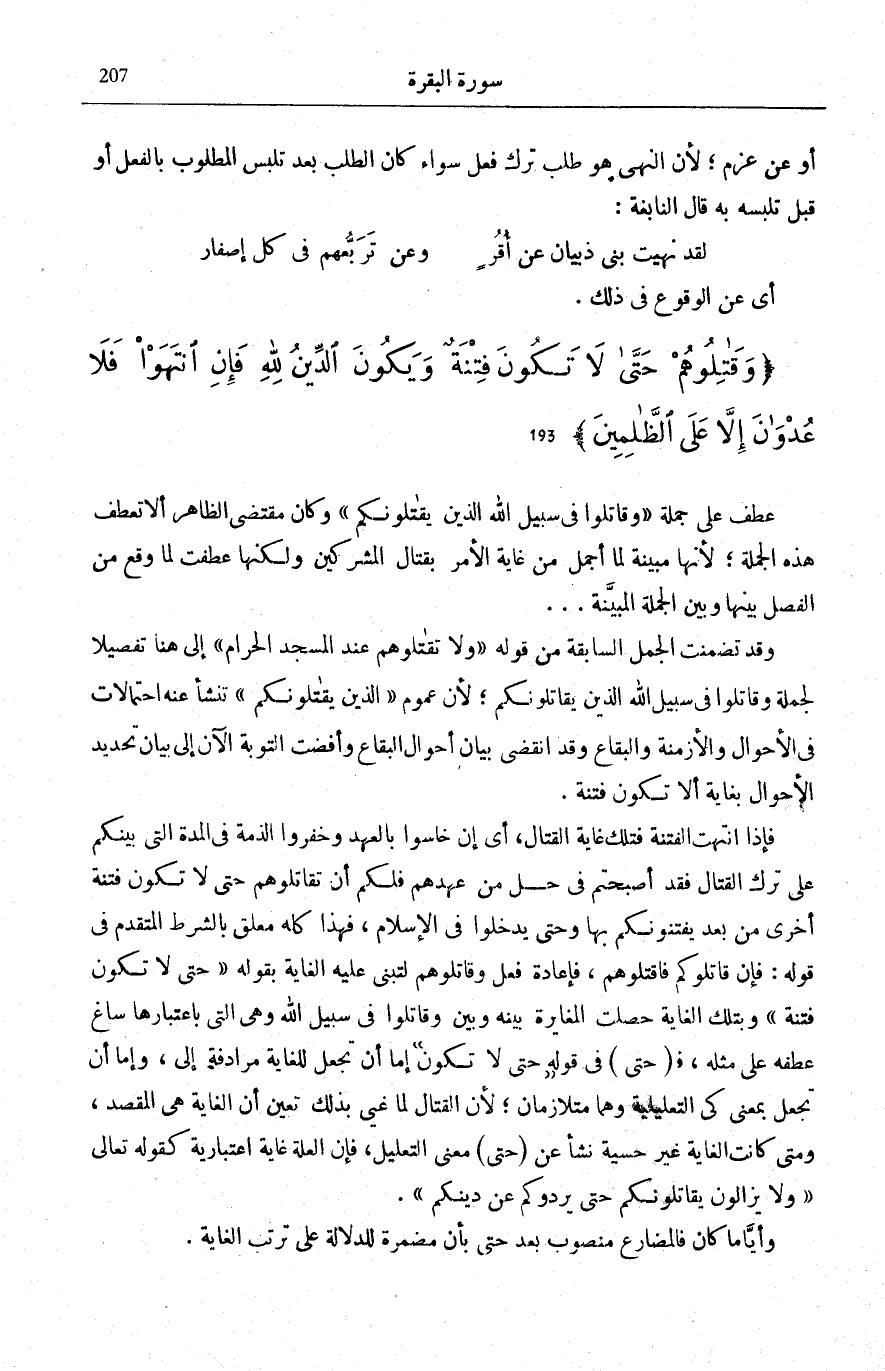 سورة البقرة 207
أو عن عزم ؛ لأن النهى هو طلب ترك فعل سواء كان الطلب بعد تلبس المطلوب بالفعل أو
قبل تلبسه به قال النابغة :
لقد نهيت بنى ذبيان عن أُقُرٍ وعن تَرَبُّعهم فى كل إصفار
أى عن الوقوع فى ذلك .
﴿ وَقَٰتِلُوهُمْ حَتَّىٰ لَا تَكُونَ فِتْنَةٌ وَيَكُونَ ٱلدِّينُ لِلَّهِ فَإِنِ ٱنتَهَوْا۟ فَلَا
عُدْوَٰنَ إِلَّا عَلَى ٱلظَّٰلِمِينَ ﴾ 193
عطف على جملة «وقاتلوا فى سبيل الله الذين يقٰتلونكم » وكان مقتضى الظاهر ألا تعطف
هذه الجملة ؛ لأنها مبينة لما أجمل من غاية الأمر بقتال المشركين ولكنها عطفت لما وقع من
الفصل بينها وبين الجملة المبيَّنة . . .
وقد تضمنت الجمل السابقة من قوله «ولا تقٰتلوهم عند المسجد الحرام» إلى هنا تفصيلا
لجملة وقاتلوا فى سبيل الله الذين يقاتلونكم ؛ لأن عموم « الذين يقٰتلونكم » تنشأ عنه احتمالات
فى الأحوال والأزمنة والبقاع وقد انقضى بيان أحوال البقاع وأفضت التوبة الآن إلى بيان تحديد
الأحوال بغاية ألا تكون فتنة .
فإذا انتهت الفتنة فتلك غاية القتال، أى إن خاسوا بالعهد وخفروا الذمة فى المدة التى بينكم
على ترك القتال فقد أصبحتم فى حل من عهدهم فلكم أن تقاتلوهم حتى لا تكون فتنة
أخرى من بعد يفتنونكم بها وحتى يدخلوا فى الإسلام ، فهذا كله معلق بالشرط المتقدم فى
قوله : فإن قاتلوكم فاقتلوهم ، فإعادة فعل وقاتلوهم لتبنى عليه الغاية بقوله « حتى لا تكون
فتنة » وبتلك الغاية حصلت المغايرة بينه وبين وقاتلوا فى سبيل الله وهى التى باعتبارها ساغ
عطفه على مثله ، فـ( حتى ) فى قوله „حتى لا تكون“ إما أن تجعل للغاية مرادفة إلى ، وإما أن
تجعل بمعنى كى التعليلية وهما متلازمان ؛ لأن القتال لما غيى بذلك تعين أن الغاية هى المقصد ،
ومتى كانت الغاية غير حسية نشأ عن (حتى) معنى التعليل، فإن العلة غاية اعتبارية كقوله تعالى
« ولا يزالون يقاتلونكم حتى يردوكم عن دينكم » .
وأيًّاما كان فالمضارع منصوب بعد حتى بأن مضمرة للدلالة على ترتب الغاية .